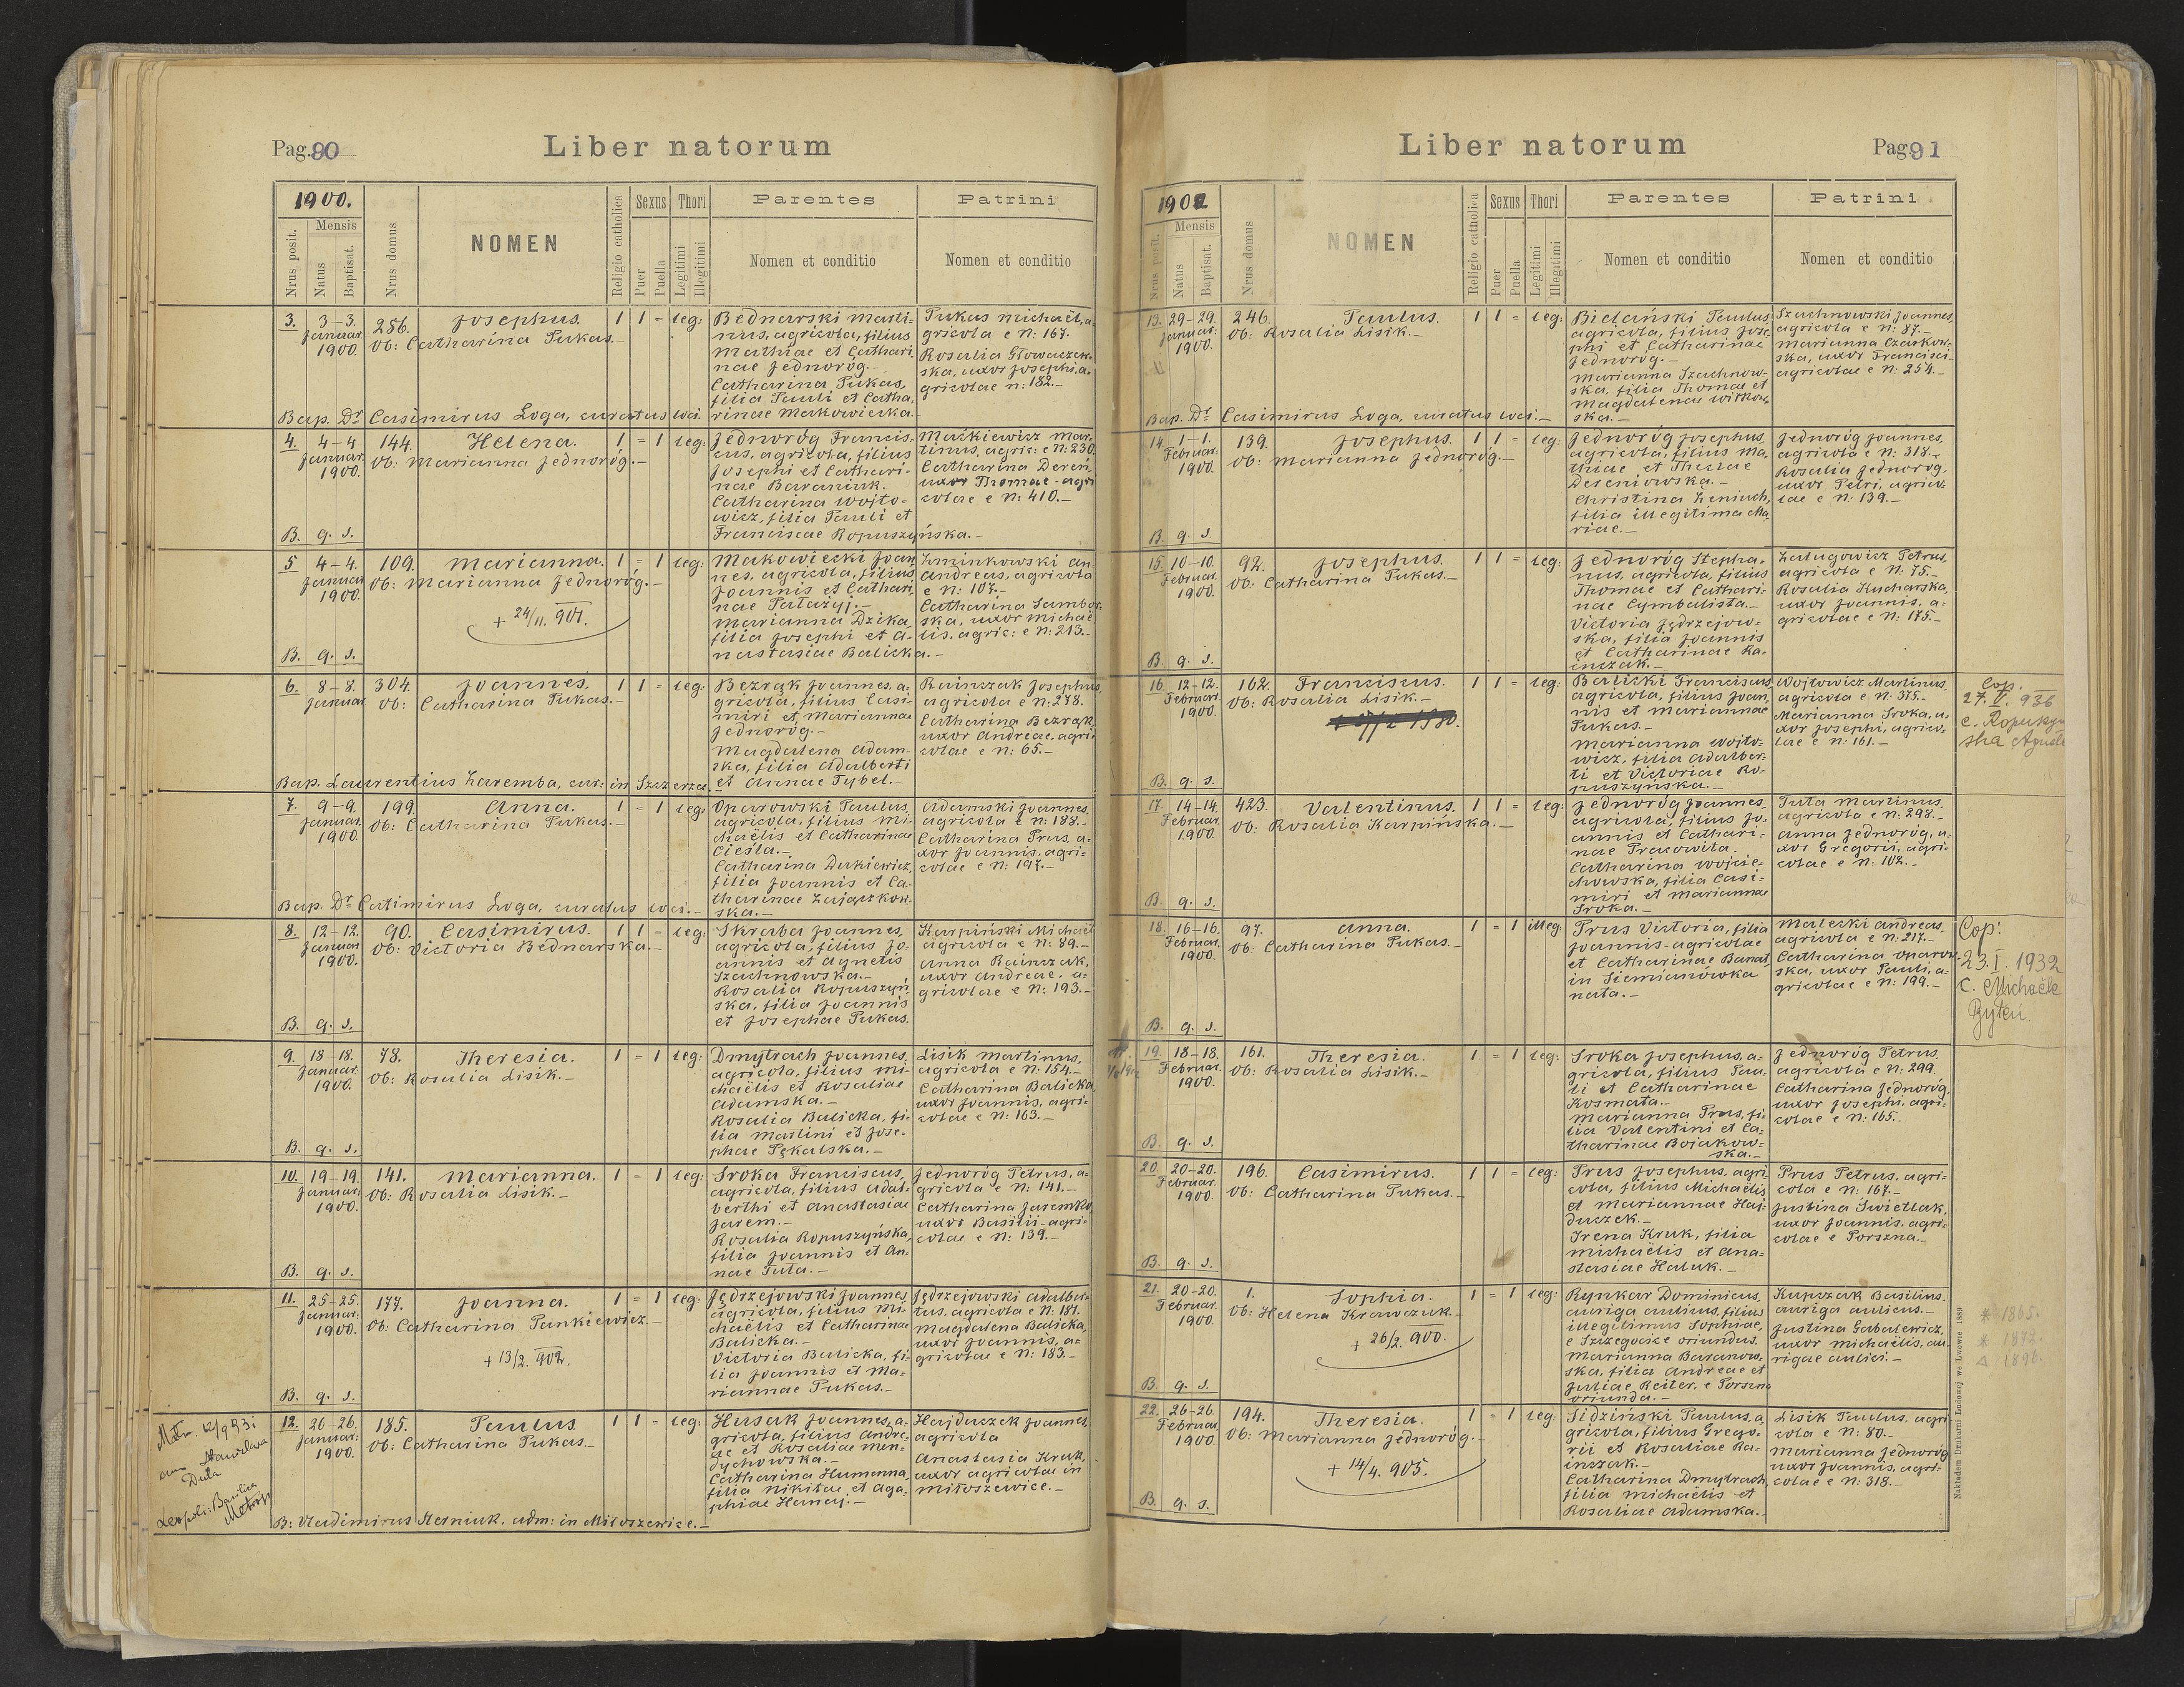 Pag. 90
Liber natorum
1900.
Nrus posit.
Mensis
Natus
Baptisat.
Nrus domus
NOMEN
Religio catholica
Sexus
Puer
Puella
Thori
Legitimi
Illegitimi
Parentes
Nomen et conditio
Patrini
Nomen et conditio
3. 3-3. Januar. 1900. 256. Josephus. 1 1 = leg:
Ob: Catharina Pukas.-
Bednarski Marti-
nus, agricola, filius
Mathiae et Cathari
nae Jednoróg.-
Catharina Pukas,
filia Pauli et Catha,
rinae Makowiecka.-
Pukas Michaël, a-
gricola e N: 167.
Rosalia Głowaczew-
ska, uxor Josephi, a-
gricolae n: 182.-
Bap. Dr Casimirus Loga, curatus loci.
4. 4-4 Januar. 1900. 144. Helena. 1 = 1 leg:
Ob: Marianna Jednoróg.-
Jednoróg Francis-
cus, agricola, filius
Josephi et Cathari-
nae Baraniuk.
Catharina Wojto-
wicz, filia Pauli et
Franciscae Ropuszyńska.-
Maćkiewicz Mar-
tinus, agric: e N: 230
Catharina Deren,
uxor Thomae - agri
colae e N: 410.-
B. q. s.
5 4-4. Januar. 1900. 109. Marianna. 1 = 1 leg:
Ob: Marianna Jednoróg.-
+ 24/II. 901.
Makowiecki Joan
nes, agricola, filius
Joannis et Cathari,
nae Pałażyj.-
Marianna Dzika,
filia Josephi et A-
nastasiae Balicka.-
Żminkowski An-
andreas, agricola
e N: 107.-
Catharina Sambor-
ska, uxor Michaë
lis, agric: e N: 213.-
B. q. s.
6. 8-8. Januar 304. Joannes. 1 1 = leg:
Ob: Catharina Pukas.-
Bezrąk Joannes, a-
gricola, filius Casi-
miri et Marianna
Jednoróg.-
Magdalena Adam-
ska, filia Adalberti
et Annae Tybel.-
Rainczak Josephus,
agricola e N: 278.
Catharina Bezrąk
uxor Andreae, agri-
colae e N: 65.-
Bap. Laurentius Zaremba, cur: in Szczerzec.
7. 9-9. Januar. 1900. 199 Anna. 1 = 1 leg:
Ob: Catharina Pukas.-
Oparowski Paulus,
agricola, filius Mi-
chaëlis et Catharinae
Cieśla.-
Catharina Dukiewicz,
filia Joannis et Ca-
tharinae Zajączkow-
ska.-
Adamski Joannes,
agricola e N: 188.-
Catharina Prus, u-
xor Joannis, agri-
colae e N: 197.-
Bap. Dr Casimirus Loga, curatus loci.-
8. 12-12. Januar 1900. 90. Casimirus. 1 1 = leg:
Ob: Victoria Bednarska.-
Skraba Joannes,
agricola, filius Jo-
annis et Agnetis
Szachnowska.-
Rosalia Ropuszyń-
ska, filia Joannis
et Josephae Pukas.
Karpiński Michaël
agricola e N: 89.-
Anna Rainczak,
uxor Andreae, a-
gricolae e N: 193.-
B. q. s.
9. 18-18. Januar. 1900. 78. Theresia. 1 = 1 leg:
Ob: Rosalia Lisik.-
Dmytrach Joannes,
agricola, filius Mi-
chaëlis et Rosaliae
Adamska.-
Rosalia Balicka, fi-
lia Martini et Jose-
phae Pękalska.-
Lisik Martinus,
agricola e N: 154.-
Catharina Balicka,
uxor Joannis, agri-
colae e N: 163.-
B. q. s.
10. 19-19. Januar. 1900. 141. Marianna. 1 = 1 leg:
Ob: Rosalia Lisik.-
Sroka Franciscus,
agricola, filius Adal-
berthi et Anastasiae
Jarem.-
Rosalia Ropuszyńska,
filia Joannis et An-
nae Tuta.-
Jednoróg Petrus, a-
gricola e N: 141.-
Catharina Jaremko,
uxor Basilii - agri-
colae e N: 139.-
B. q. s.
11. 25-25. Januar. 1900. 177. Joanna. 1 = 1 leg:
Ob: Catharina Pankiewicz.-
+ 13/2. 902.
Jędrzejowski Joannes,
agricola, filius Mi-
chaëlis et Catharinae
Balicka.-
Victoria Balicka, fi-
lia Joannis et Ma-
riannae Pukas.-
Jędrzejowski Adalber-
tus, agricola e N: 181.
Magdalena Balicka,
uxor Joannis, a-
gricolae e N: 183.-
B. q. s.
12. 26-26. Januar: 1900. 185. Paulus. 1 1 = leg:
Ob: Catharina Pukas.-
Husak Joannes, a-
gricola, filius Andre-
ae et Rosaliae Men-
dychowska.-
Catharina Humenna,
filia Nikitae et Aga-
phiae Hanaj.-
Hajduczek Joannes,
agricola
Anastasia Kruk,
uxor agricolae in
Miłoszowice.-
B: Vladimirus Herniuk, adm: in Miłoszowice.-
cum Stanislava
Duta
Leopoli: Basilica
Metrop
Pag. 91
Liber natorum
1900
Nrus posit.
Mensis
Natus
Baptisat.
Nrus domus
NOMEN
Religio catholica
Sexus
Puer
Puella
Thori
Legitimi
Illegitimi
Parentes
Nomen et conditio
Patrini
Nomen et conditio
13. 29-29. Januar. 1900. 246. Paulus. 1 1 = leg:
Ob: Rosalia Lisik.-
Bielański Paulus,
agricola, filius Jose-
phi et Catharinae
Jednoróg.-
Marianna Szachnow-
ska, filia Thomae et
Magdalenae Witkow-
ska.-
Szachnowski Joannes,
agricola e N: 87.-
Marianna Czarkow-
ska, uxor Francisci -
agricolae e N: 254.-
Bap. Dr Casimirus Loga, curatus loci.-
14. 1-1. Februar. 1900. 139. Josephus. 1 1 = leg:
Ob: Marianna Jednoróg.-
Jednoróg Josephus,
agricola, filius Ma-
thiae et Theclae
Dereniowska.-
Christina Zeniuch,
filia illegitima Ma-
riae.-
Jednoróg Joannes,
agricola e N: 318.-
Rosalia Jednoróg,
uxor Petri, agrico-
lae e N: 139.-
B. q. s.
15. 10-10. Februar. 1900. 92. Josephus. 1 1 = leg:
Ob: Catharina Pukas.-
Jednoróg Stepha-
nus, agricola, filius
Thomae et Cathari-
nae Cymbalista.-
Victoria Jędrzejow-
ska, filia Joannis
et Catharinae Ra-
inczak.-
Załugowicz Petrus,
agricola e N: 75.-
Rosalia Kucharska,
uxor Joannis, a-
gricolae e N: 175.-
B. q. s.
16. 12-12. Februar. 1900. 162. Franciscus. 1 1 = leg:
Ob: Rosalia Lisik.-
Balicki Franciscus,
agricola, filius Joan-
nis et Mariannae
Pukas.-
Marianna Wojto-
wicz, filia Adalber-
ti et Victoriae Ro-
puszyńska.-
Wojtowicz Martinus,
agricola e N: 375.-
Marianna Sroka, u-
xor Josephi, agrico-
lae e N: 161.-
B. q. s.
Cop.
27. II. 936
17. 14-14. Februar. 1900. 423. Valentinus. 1 1 = leg:
Ob: Rosalia Karpińska.-
Jednoróg Joannes,
agricola, filius Jo-
annis et Cathari-
nae Pracowita.
Catharina Wojcie-
chowska, filia Casi-
miri et Mariannae
Sroka.-
Tuta Martinus,
agricola e N: 298.-
Anna Jednoróg, u-
xor Gregorii, agri-
colae e N: 102.-
B. q. s.
18. 16-16. Februar. 1900. 97. Anna. 1 = 1 illeg:
Ob: Catharina Pukas.-
Prus Victoria, filia
Joannis - agricolae
et Catharinae Banat
in Siemianówka
nata.-
Malecki Andreas,
agricola e N: 217.-
Catharina Oparow-
ska, uxor Pauli, a-
gricolae e N: 199.-
B. q. s.
Cop:
23. I. 1932
c. Michaële
Pytel.
19. 18-18. Februar. 1900. 161. Theresia. 1 = 1 leg:
Ob: Rosalia Lisik.-
Sroka Josephus, a-
gricola, filius Pau-
li et Catharinae
Kosmata.-
Marianna Prus, fi-
lia Valentini et Ca-
tharinae Bojakow-
ska.-
Jednoróg Petrus,
agricola e N: 299.
Catharina Jednoróg,
uxor Josephi, agri-
colae e N: 165.
B. q. s.
20. 20-20. Februar. 1900. 196. Casimirus. 1 1 = leg:
Ob: Catharina Pukas.-
Prus Josephus, agri-
cola, filius Michaëlis
et Mariannae Haj-
duczek.-
Irena Kruk, filia
Michaëlis et Ana-
stasiae Haluk.-
Prus Petrus, agri-
cola e N: 167.-
Justina Świetlak,
uxor Joannis, agri-
colae e Porszna.-
B. q. s.
21. 20-20. Februar. 1900. 1. Sophia. 1 = 1 leg:
Ob: Helena Krawczuk.-
+ 26/2. 900.
Rynkar Dominicus,
auriga aulicus, filius
illegitimus Sophiae,
e Szczegocice oriundus.
Marianna Baranow-
ska, filia Andreae et
Juliae Reiter, e Porszna
oriunda.-
Kupczak Basilius,
auriga aulicus.-
Justina Gabalewicz,
uxor Michaëlis, au
rigae aulici.-
B. q. s.
* 1865.
* 1872.
1896.
22. 26-26. Februar. 1900. 194. Theresia. 1 = 1 leg:
Ob: Marianna Jednoróg.-
+ 14/4. 905.
Sidziński Paulus, a
gricola, filius Grego-
rii et Rosaliae Ra-
inczak.-
Catharina Dmytrach,
filia Michaëlis et
Rosaliae Adamska.-
Lisik Paulus, agri
cola e N: 80.-
Marianna Jednoróg
uxor Joannis, agri-
colae e N: 318.-
B. q. s.
Nakładem Drukarni Ludowej we Lwowie 1889